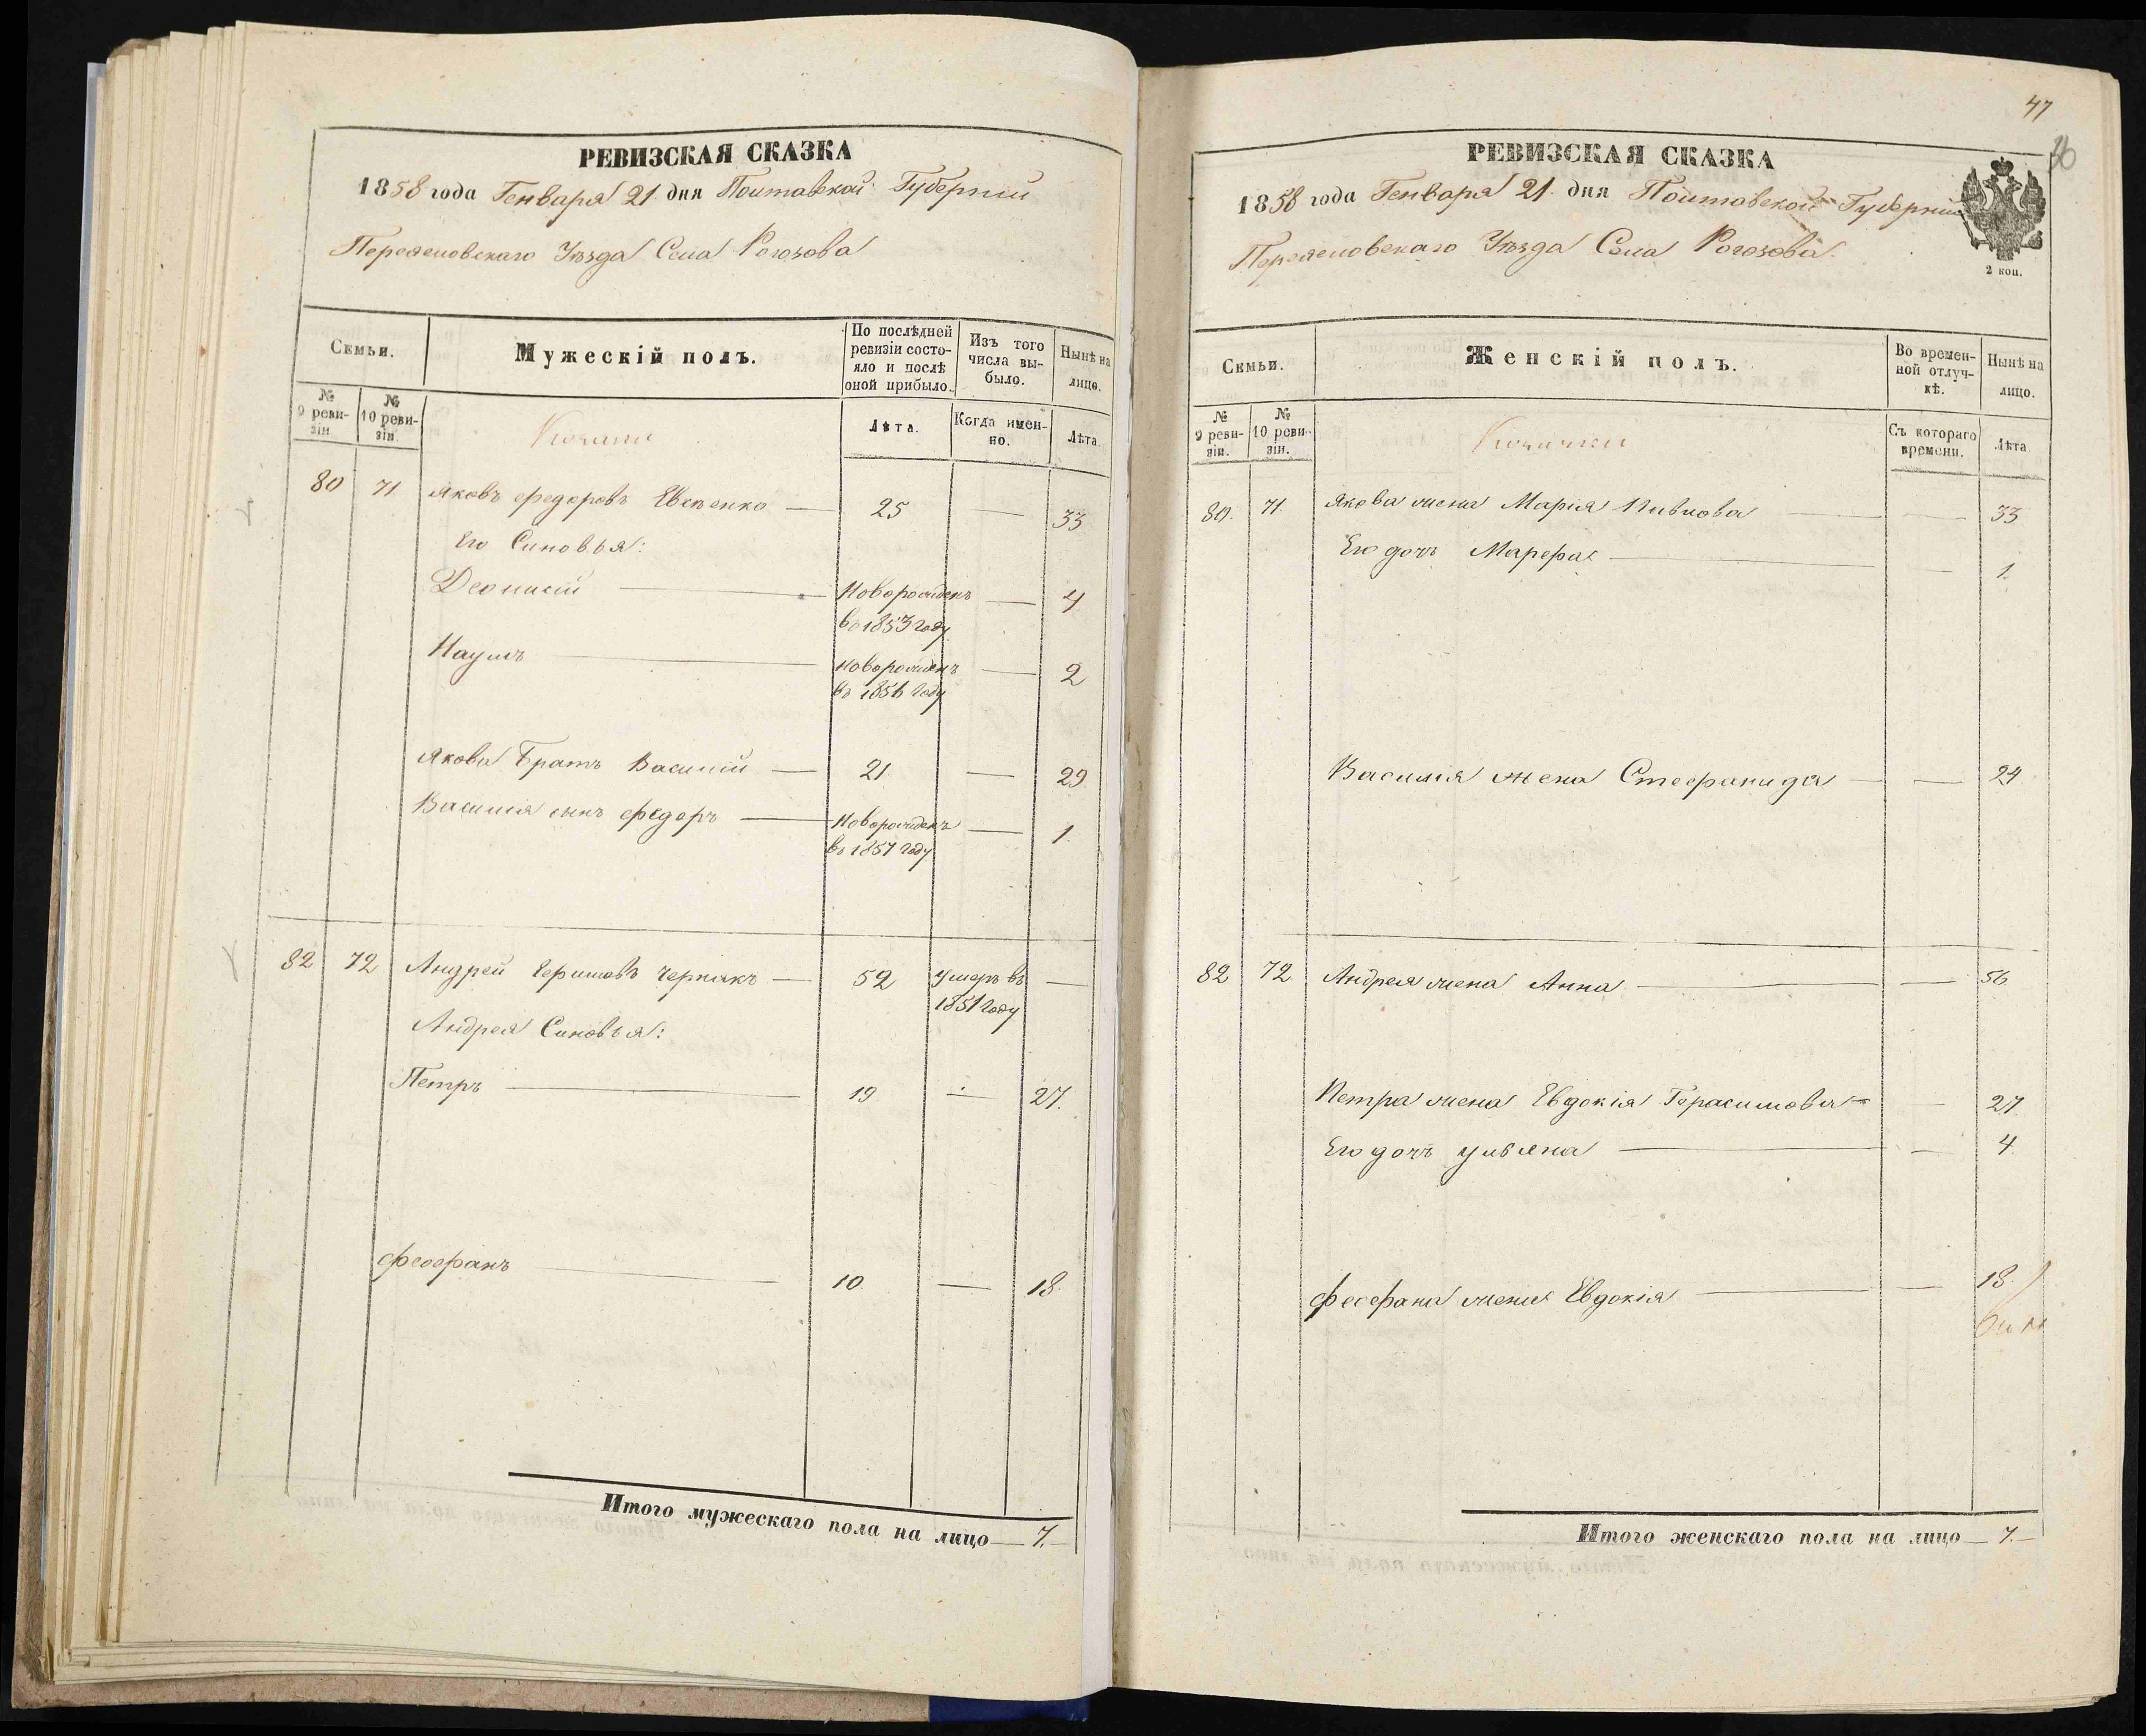 РЕВИЗСКАЯ СКАЗКА
1858 года Генваря 21 дня Полтавской Губерніи
Переяславскаго Уѣзда Села Рогозова
Семьи.
Мужескій полъ.
По послѣдней ревизіи состояло и послѣ оной прибыло.
Изъ того числа выбыло.
Нынѣ на лицо.
№ 9 ревизіи
№ 10 ревизіи
Козаки
Лѣта.
Когда именно.
Лѣта.
80 71 Яковъ Федоровъ Евсѣенко — 25 — 33
Его Синовья:
Деонисій — Новорожденъ — 4
въ 1853 году
Наумъ — Новорожденъ — 2
въ 1856 году
Якова Братъ Василій — 21 — 29
Василія сынъ Федоръ — Новорожденъ — 1.
въ 1857 году
82 72 Андрей Чернякъ — 52 Умеръ въ —
1851 году
Андрея Синовья:
Петръ — 19 — 27.
Феофанъ — 10. — 18.
Итого мужескаго пола на лицо — 7. —
47
36
РЕВИЗСКАЯ СКАЗКА
1858 года Генваря 21 дня Полтавской Губерніи
Переяславскаго Уѣзда Села Рогозова.
2 коп.
Семьи.
Женскій полъ.
Во временной отлучкѣ.
Нынѣ на лицо.
№ 9 ревизіи.
№ 10 ревизіи.
Козачки
Съ котораго времени.
Лѣта.
80. 71. Якова жена Марія Павлова — — 33
Его дочь Марефа — — 1.
Василія жена Стефанида — — 24
82 72 Андрея жена Анна — — 56
Петра жена Евдокія Герасимова — — 27
Его дочь Ульяна — — 4
Феофана жена Евдокія — — 18
Итого женскаго пола на лицо — 7. —